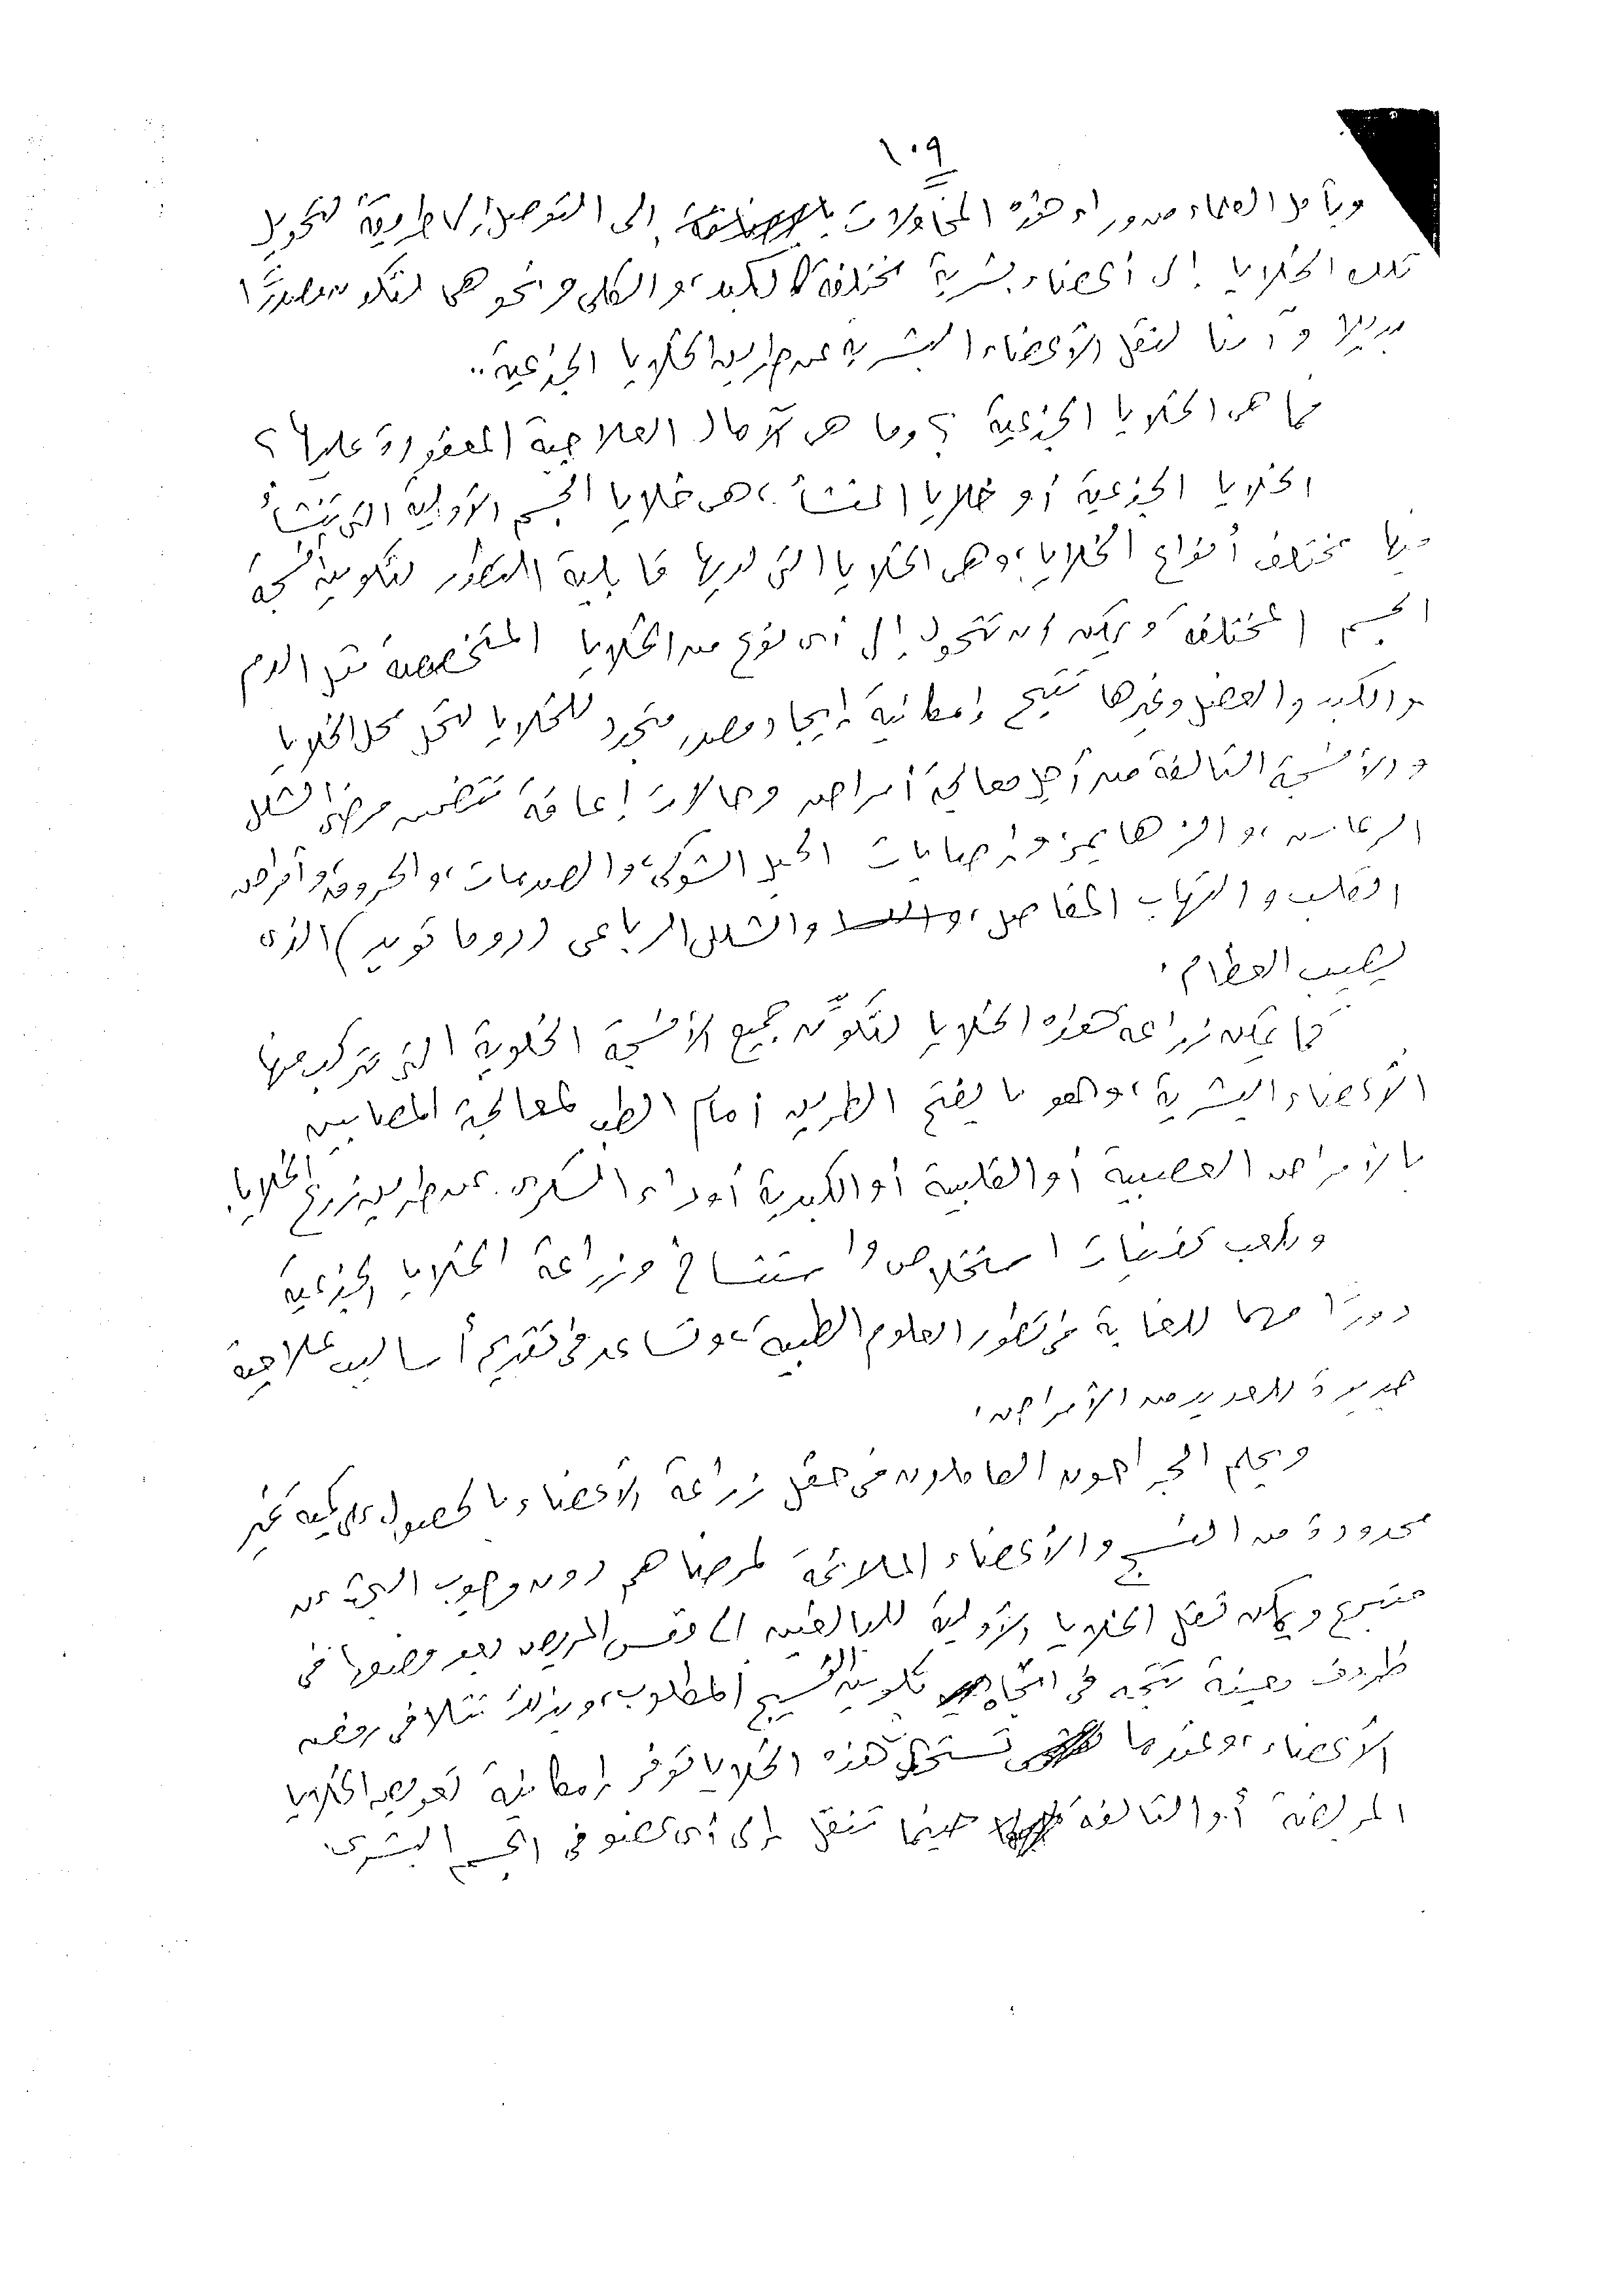 ١٠٩
ويأمل العلماء من وراء هذه المحاولات إلى التوصل إلى طريقة لتحويل
تلك الخلايا إلى أعضاء بشرية مختلفة كالكبد، والكلى ونحو هى لتكون مصدرًا
بديلا وآمنا لنقل الأعضاء البشرية عن طريق الخلايا الجذعية..
فما هى الخلايا الجذعية ؟ وما هى الآمال العلاجية المعقودة عليها ؟
الخلايا الجذعية أو خلايا المنشأ، هى خلايا الجسم الأولية التى تنشأ
منها مختلف أنواع الخلايا، وهى الخلايا التى لديها قابلية التطور لتكوين أنسجة
الجسم المختلفة ويمكن أن تتحول إلى أى نوع من الخلايا المتخصصة مثل الدم
والكبد والعضل وغيرها تتيح إمكانية إيجاد مصدر متجدد للخلايا لتحل محل الخلايا
والأنسجة التالفة من أجل معالجة أمراض وحالات إعاقة تتضمن مرضى الشلل
الرعاش، والزهايمز وإصابات الحبل الشوكى، والصدمات، والحروق، وأمراض
القلب والتهاب المفاصل، والشلل الرباعى (روماتويد) الذى
يصيب العظام.
كما يمكن زراعة هذه الخلايا لتكوّن جميع الأنسجة الخلوية التى تتركب منها
الأعضاء البشرية، وهو ما يفتح الطريق أمام الطب لمعالجة المصابين
بالأمراض العصبية أو القلبية أو الكبدية أو داء السكرى. عن طريق زرع الخلايا.
وتلعب تقنيات استخلاص واستنساخ وزراعة الخلايا الجذعية
دورًا مهما للغاية فى تطور العلوم الطبية، وتساعد فى تقديم أساليب علاجية
جديدة للعديد من الأمراض.
ويحلم الجراحون العاملون فى حقل زراعة الأعضاء بالحصول على كمية غير
محدودة من النسج والأعضاء الملائمة لمرضاهم دون وجوب البحث عن
متبرع ويمكن نقل الخلايا الأولية للبالغين إلى نفس المريض بعد وضعها فى
ظروف معينة تتجه فى اتجاه تكوين النسيج المطلوب، وبذلك نتلافى رفض
الأعضاء، وعندما تستحق هذه الخلايا توفر إمكانية تعويض الخلايا
المريضة أو التالفة حينما تنقل إلى أى عضو فى الجسم البشرى.